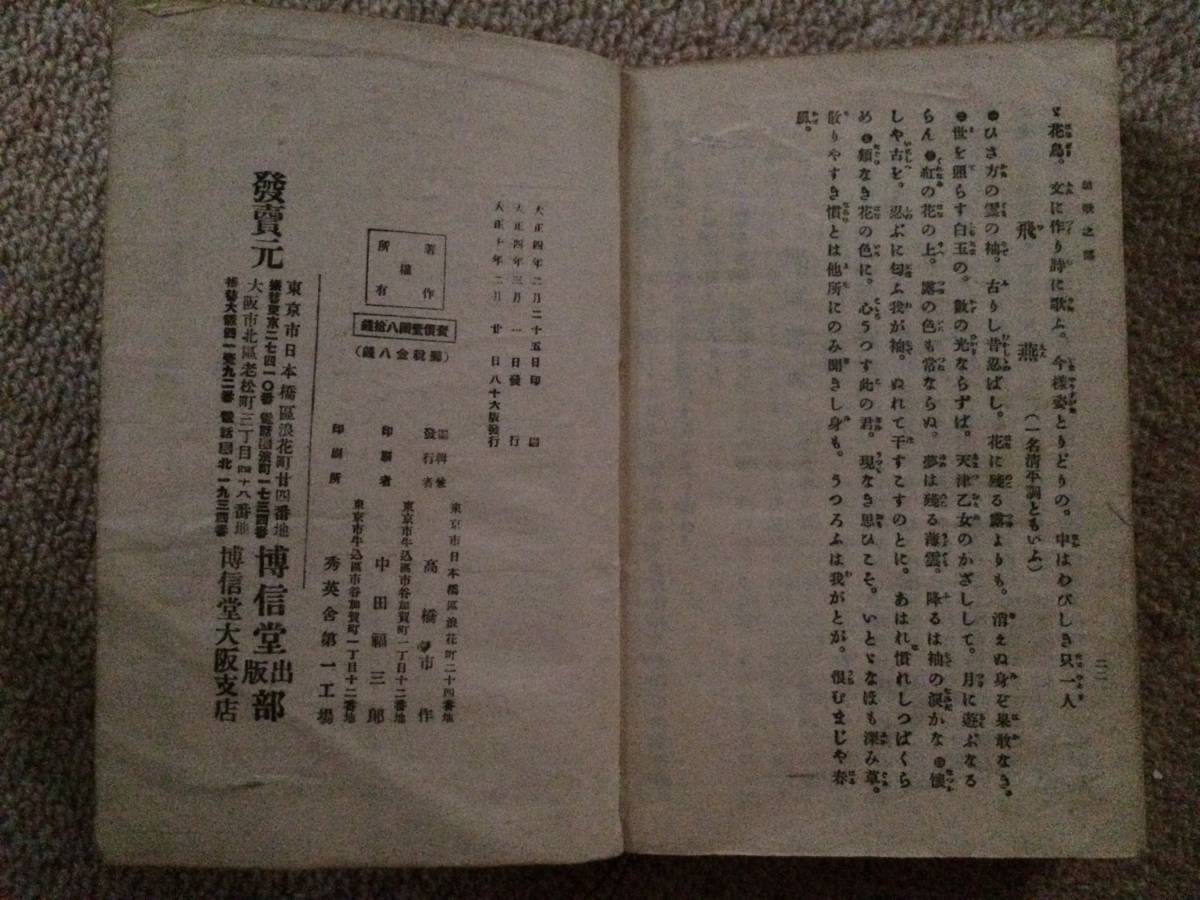 組歌之部
二二
〻花鳥。文に作り詩に歌ふ。今樣姿とりどりの。中はわびしき只一人
飛燕
（一名清平調ともいふ）
◉ひさ方の雲の袖。古りし昔忍ばし。花に殘る露よりも。消えぬ身ぞ果敢なき。
◉世を照らす白玉の。數の光ならずば。天津乙女のかざしして。月に遊ぶなる
らん◉紅の花の上。露の色も常ならぬ。夢は殘る雲。降るは袖の涙かな◉懷
しや古を。忍ぶに匂ふ我が袖。ぬれて干すこすのとに。あはれ慣れしつばくら
め◉類なき花の色に。心うつす此の君。現なき思ひこそ。いとゞなほも深み草。
散りやすき慣とは他所にのみ聞きし身も。うつろふは我がとが。恨むまじや春
風。
大正四年二月二十五日印刷
大正四年三月一日發行
大正十年二月廿日八十六版發行
著作權所有
實價壹圓八拾錢
（郵税金八錢）
編輯兼發行者
東京市日本橋區浪花町二十四番地
高橋市作
印刷者
東京市牛込區市谷加賀町一丁目十二番地
中田福三郎
印刷所
東京市牛込區市谷加賀町一丁目十二番地
秀英舍第一工場
發賣元
東京市日本橋區浪花町廿四番地
博信堂出版部
振替東京二七四一〇番 電話浪町一七三四番
大阪市北區老松町三丁目四十八番地
博信堂大阪支店
振替大阪四一九二番 電話北一九三四番